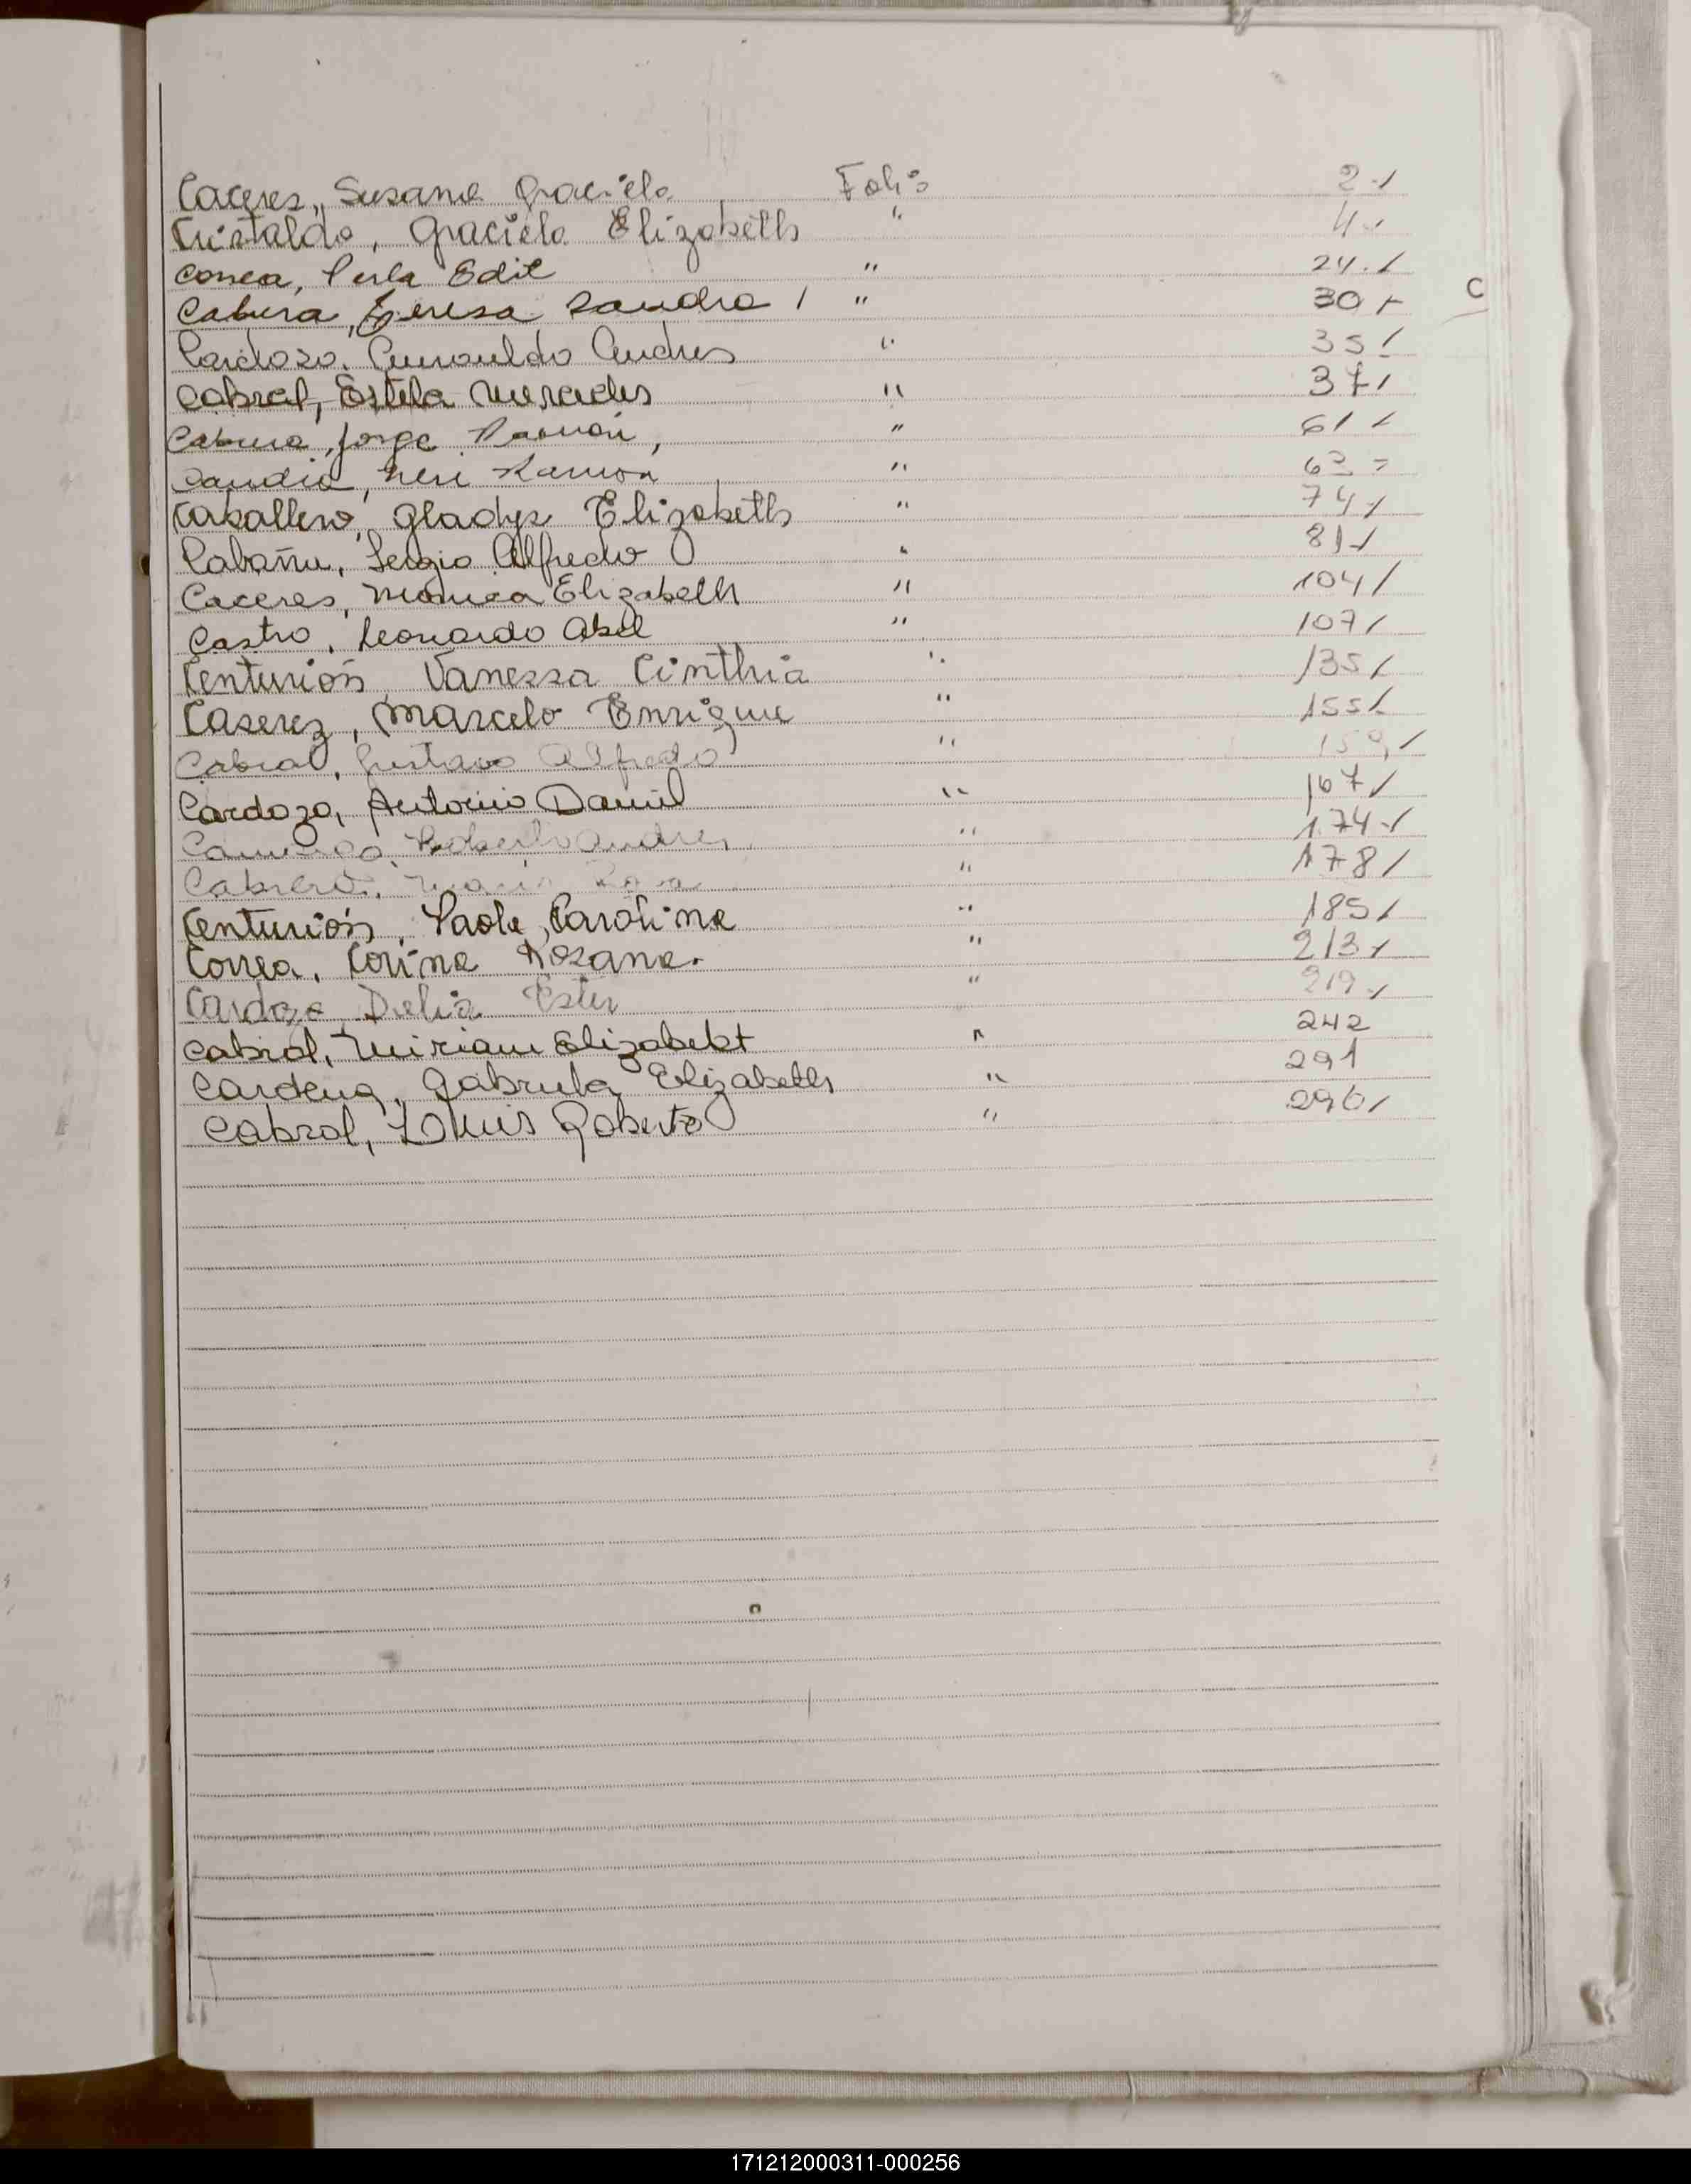 Caceres, Susana Graciela Folio 2 -/
Cristaldo, Graciela Elizabeth " 4 -/
Correa, Perla Edit " 24. /
Cabrera, Teresa Sandra / " 30 /-
Cardozo, Andres " 35 /
Cabral, Estela Mercedes " 37 /
Cabrera, Jorge Ramón, " 61 /
Candia, Neri Ramon " 63 =
Caballero, Gladys Elizabeth " 74 /
Cabañu, Sergio Alfredo " 81 -/
Caceres, Monica Elizabeth " 104 /
Castro, Leonardo Abel " 107 /
Centurión, Vanessa Cinthia " 135 /
Caserez, Marcelo Enrique " 155 /
Cabral, Gustavo Alfredo " 159 /
Cardozo, Antonio Daniel " 167 /
Roberto Andres " 174 -/
Cabrera, Maria Rosa " 178 /
Centurión, Paola Carolina " 185 /
Correa, Corina Rosana. " 213 /
Cardozo Delia Ester " 219 -/
Cabral, Miriam Elizabebt " 242
Cardena, Gabriela Elizabeth " 291
Cabral, Luis Roberto " 296 /
C
171212000311-000256